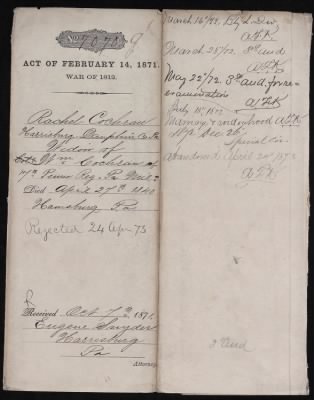 No. 7073
ACT OF FEBRUARY 14, 1871.
WAR OF 1812.
Rachel Cochran
Harrisburg Dauphin Co Pa
Widow of
Wm Cochran
Penn Reg. Pa Mil
Died April 27th 1840
Harrisburg Pa
Rejected 24 Apr 73
Received Oct 7th 1871
Eugene Snyder
Harrisburg
Pa
Attorney
March 16/72,
A.F.K
March 28/72. 3d aud
A.F.K
May 22/72. 3d aud. for re-
examination
A.F.K
July 15, 1872
Dec 26
Special
Abandoned April 24th 1873
A.F.K
3d Aud